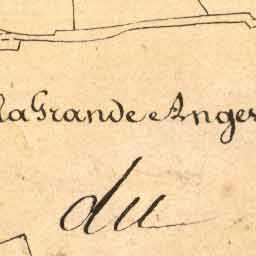 la Grande Anger
du